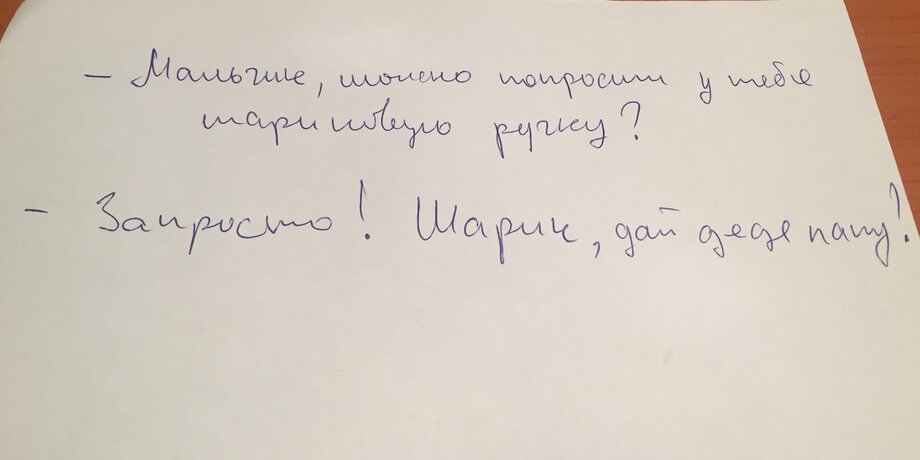 – Мальчик, можно попросить у тебя
шариковую ручку?
– Запросто! Шарик, дай деде лапу!